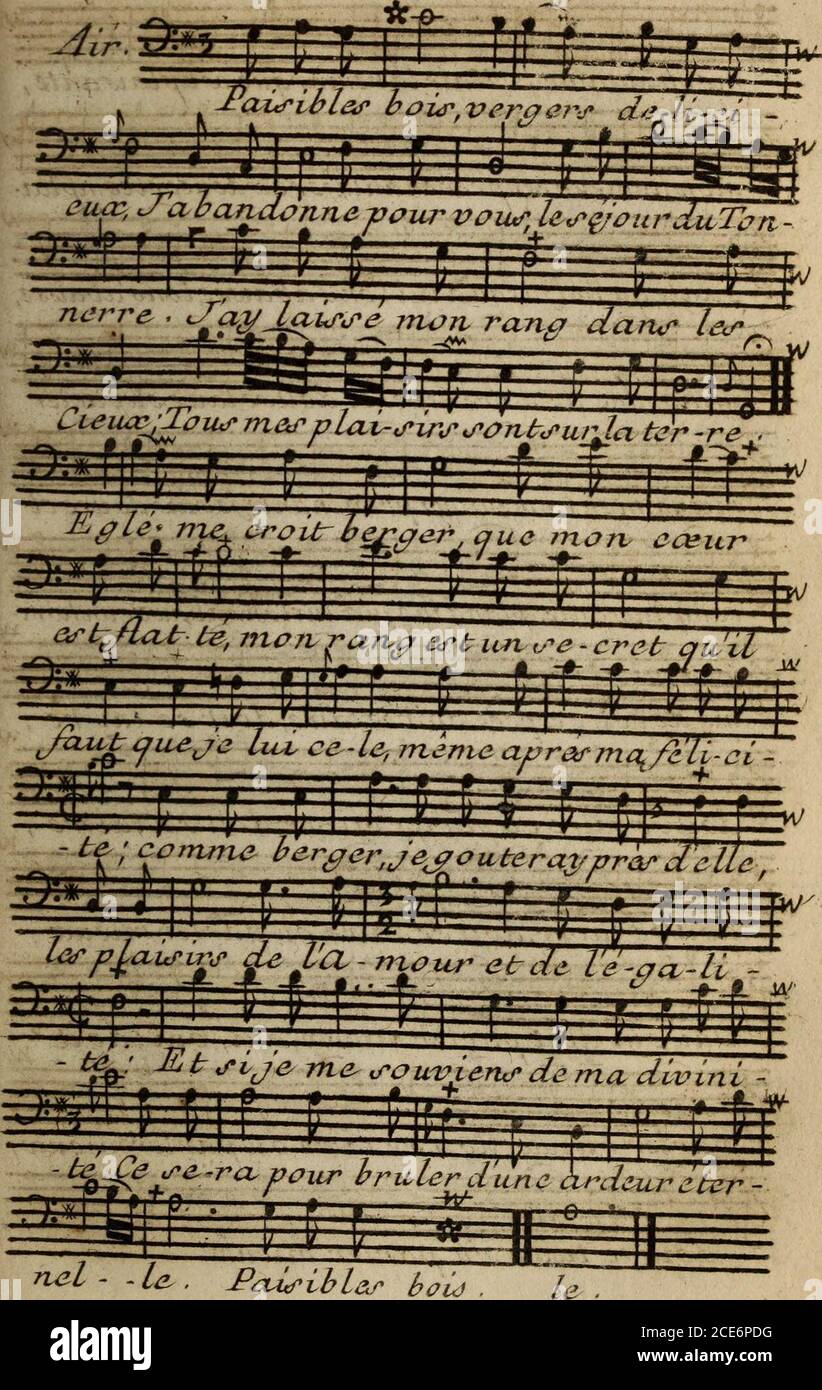 Air.
Paisibles bois, vergers de-li-ci-
eux, J'abandonne pour vous, le séjour du Ton-
nerre. J'ay laissé mon rang dans les
Cieux; Tous mes plai-sirs sont sur la ter-re.
Eglé me croit berger, que mon cœur
est flat-té, mon rang est un se-cret qu'il
faut que je lui ce-le, même aprés ma féli-ci-
-té; comme berger, je gouteray prés d'elle,
les plaisirs de l'a-mour et de l'é-ga-li-
-té; Et si je me souviens de ma divini-
-té Ce se-ra pour bruler d'une ardeur éter-
nel--le. Paisibles bois. le.
alamy
Image ID: 2CE6PDG
www.alamy.com